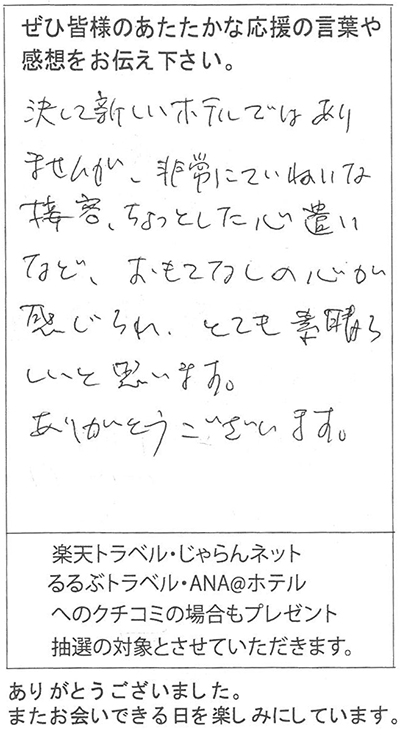 ぜひ皆様のあたたかな応援の言葉や
感想をお伝え下さい。
決して新しいホテルではあり
ませんが、非常にていねいな
接客、ちょっとした心遣い
など、おもてなしの心が
感じられ、とても素晴ら
しいと思います。
ありがとうございます。
楽天トラベル・じゃらんネット
るるぶトラベル・ANA@ホテル
へのクチコミの場合もプレゼント
抽選の対象とさせていただきます。
ありがとうございました。
またお会いできる日を楽しみにしています。